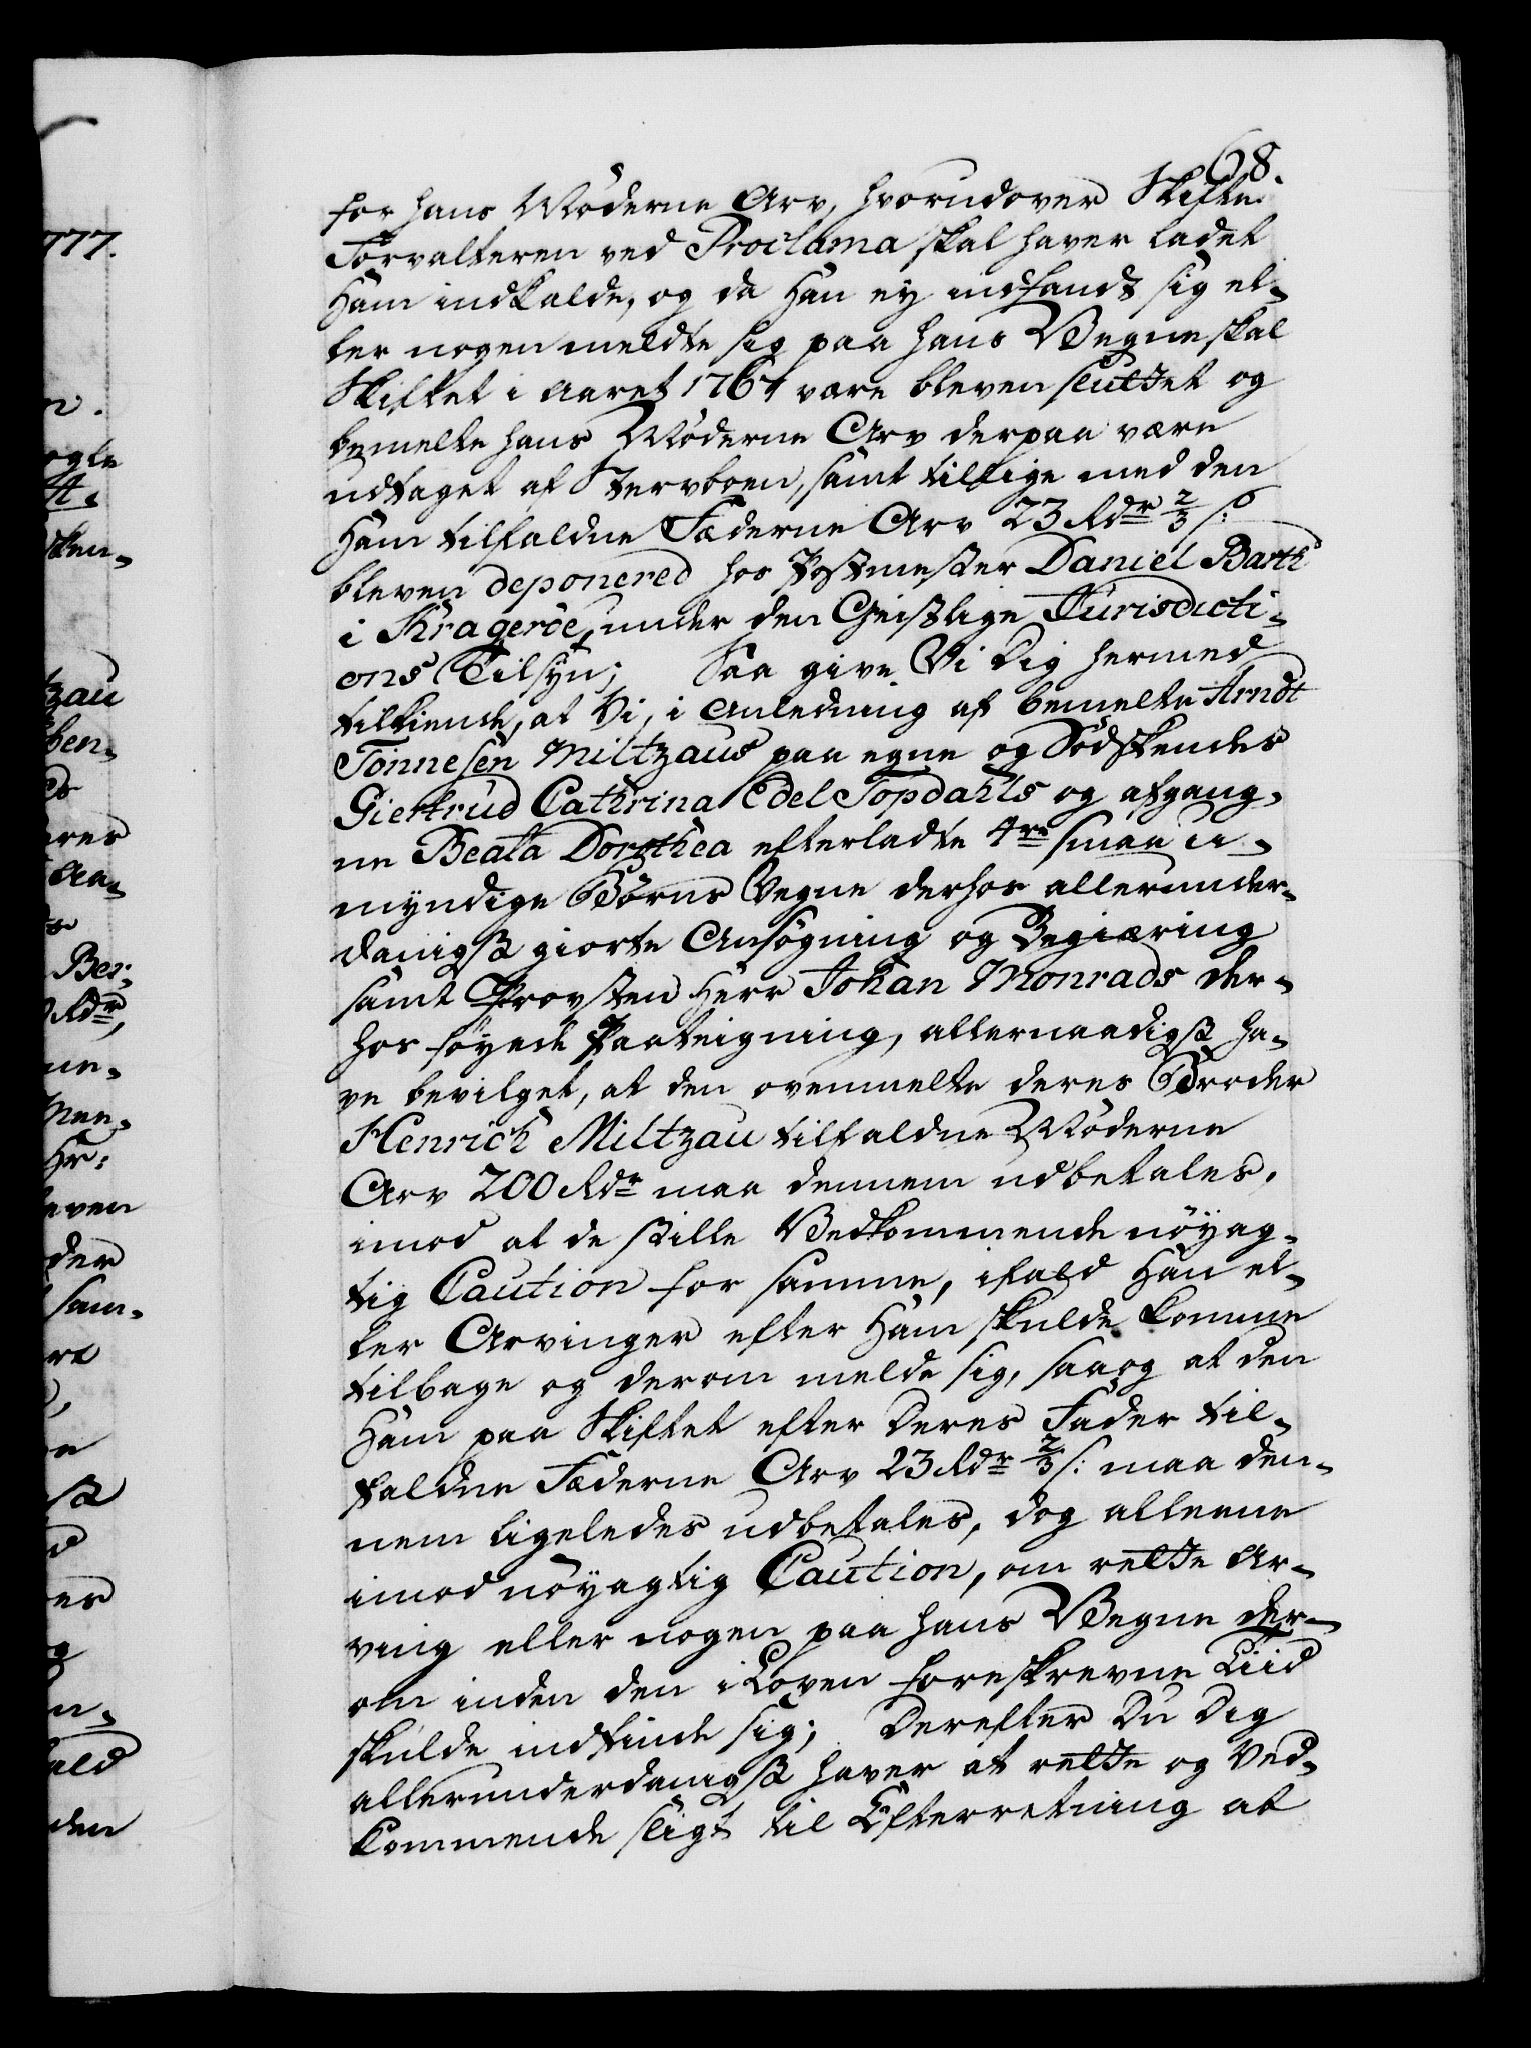 68.
for hans Møderne Arv, hvorudover Skifte
Forvalteren ved Proclama skal haver ladet
Ham indkalde, og da Han ey indfandt sig el¬
ler nogen meldte sig paa hans Vegne, skal
Skiftet i Aaret 1764 være bleven sluttet og
bemelte hans Møderne Arv derpaa være
udtaget af Stervboen, samt tillige med den
Ham tilfaldne Fæderne Arv 23 Rdr 2/3 s:
bleven deponered hos Postmester Daniel Barth
i Krageröe, under den Geistlige Jurisdicti¬
ons Tilsyn; Saa give Vi Dig hermed
tilkiende, at Vi, i Anledning af bemelte Arndt
Tönnesen Miltzaus paa egne og Sødskendes
Giertrud Cathrina Edel Topdahls og afgang¬
ne Beata Dorothea efterladte 4re smaa u¬
myndige Børns Vegne derhos allerunder¬
danigst giorte Ansøgning og Begiæring
samt Provsten Herr Johan Monrads der¬
hos føyede Paateigning, allernaadigst ha¬
ve bevilget, at den ovenmelte deres Broder
Henrich Miltzau tilfaldne Møderne
Arv 200 Rdr maa dennem udbetales,
imod at de stille Vedkommende nøyag¬
tig Caution for samme, ifald Han el¬
ler Arvinger efter Ham skulde komme
tilbage og derom melde sig, saa og at den
Ham paa Skiftet efter Deres Fader til¬
faldne Fæderne Arv 23 Rdr 2/3 s: maa den¬
nem ligeledes udbetales, dog alleene
imod nøyagtig Caution, om rette Ar¬
ving eller nogen paa hans Vegne der¬
om inden den i Loven foreskrevne Tiid
skulde indfinde sig; Derefter Du Dig
allerunderdanigst haver at rette og Ved¬
kommende sligt til Efterretning at
777.
n.
ogle
A.
sken¬
tzau
ben¬
es
eres
Aa¬
Ber¬
Rdr,
ne¬
Hr:
leven
der
sam¬
re
st
er
g
n¬
ald
den